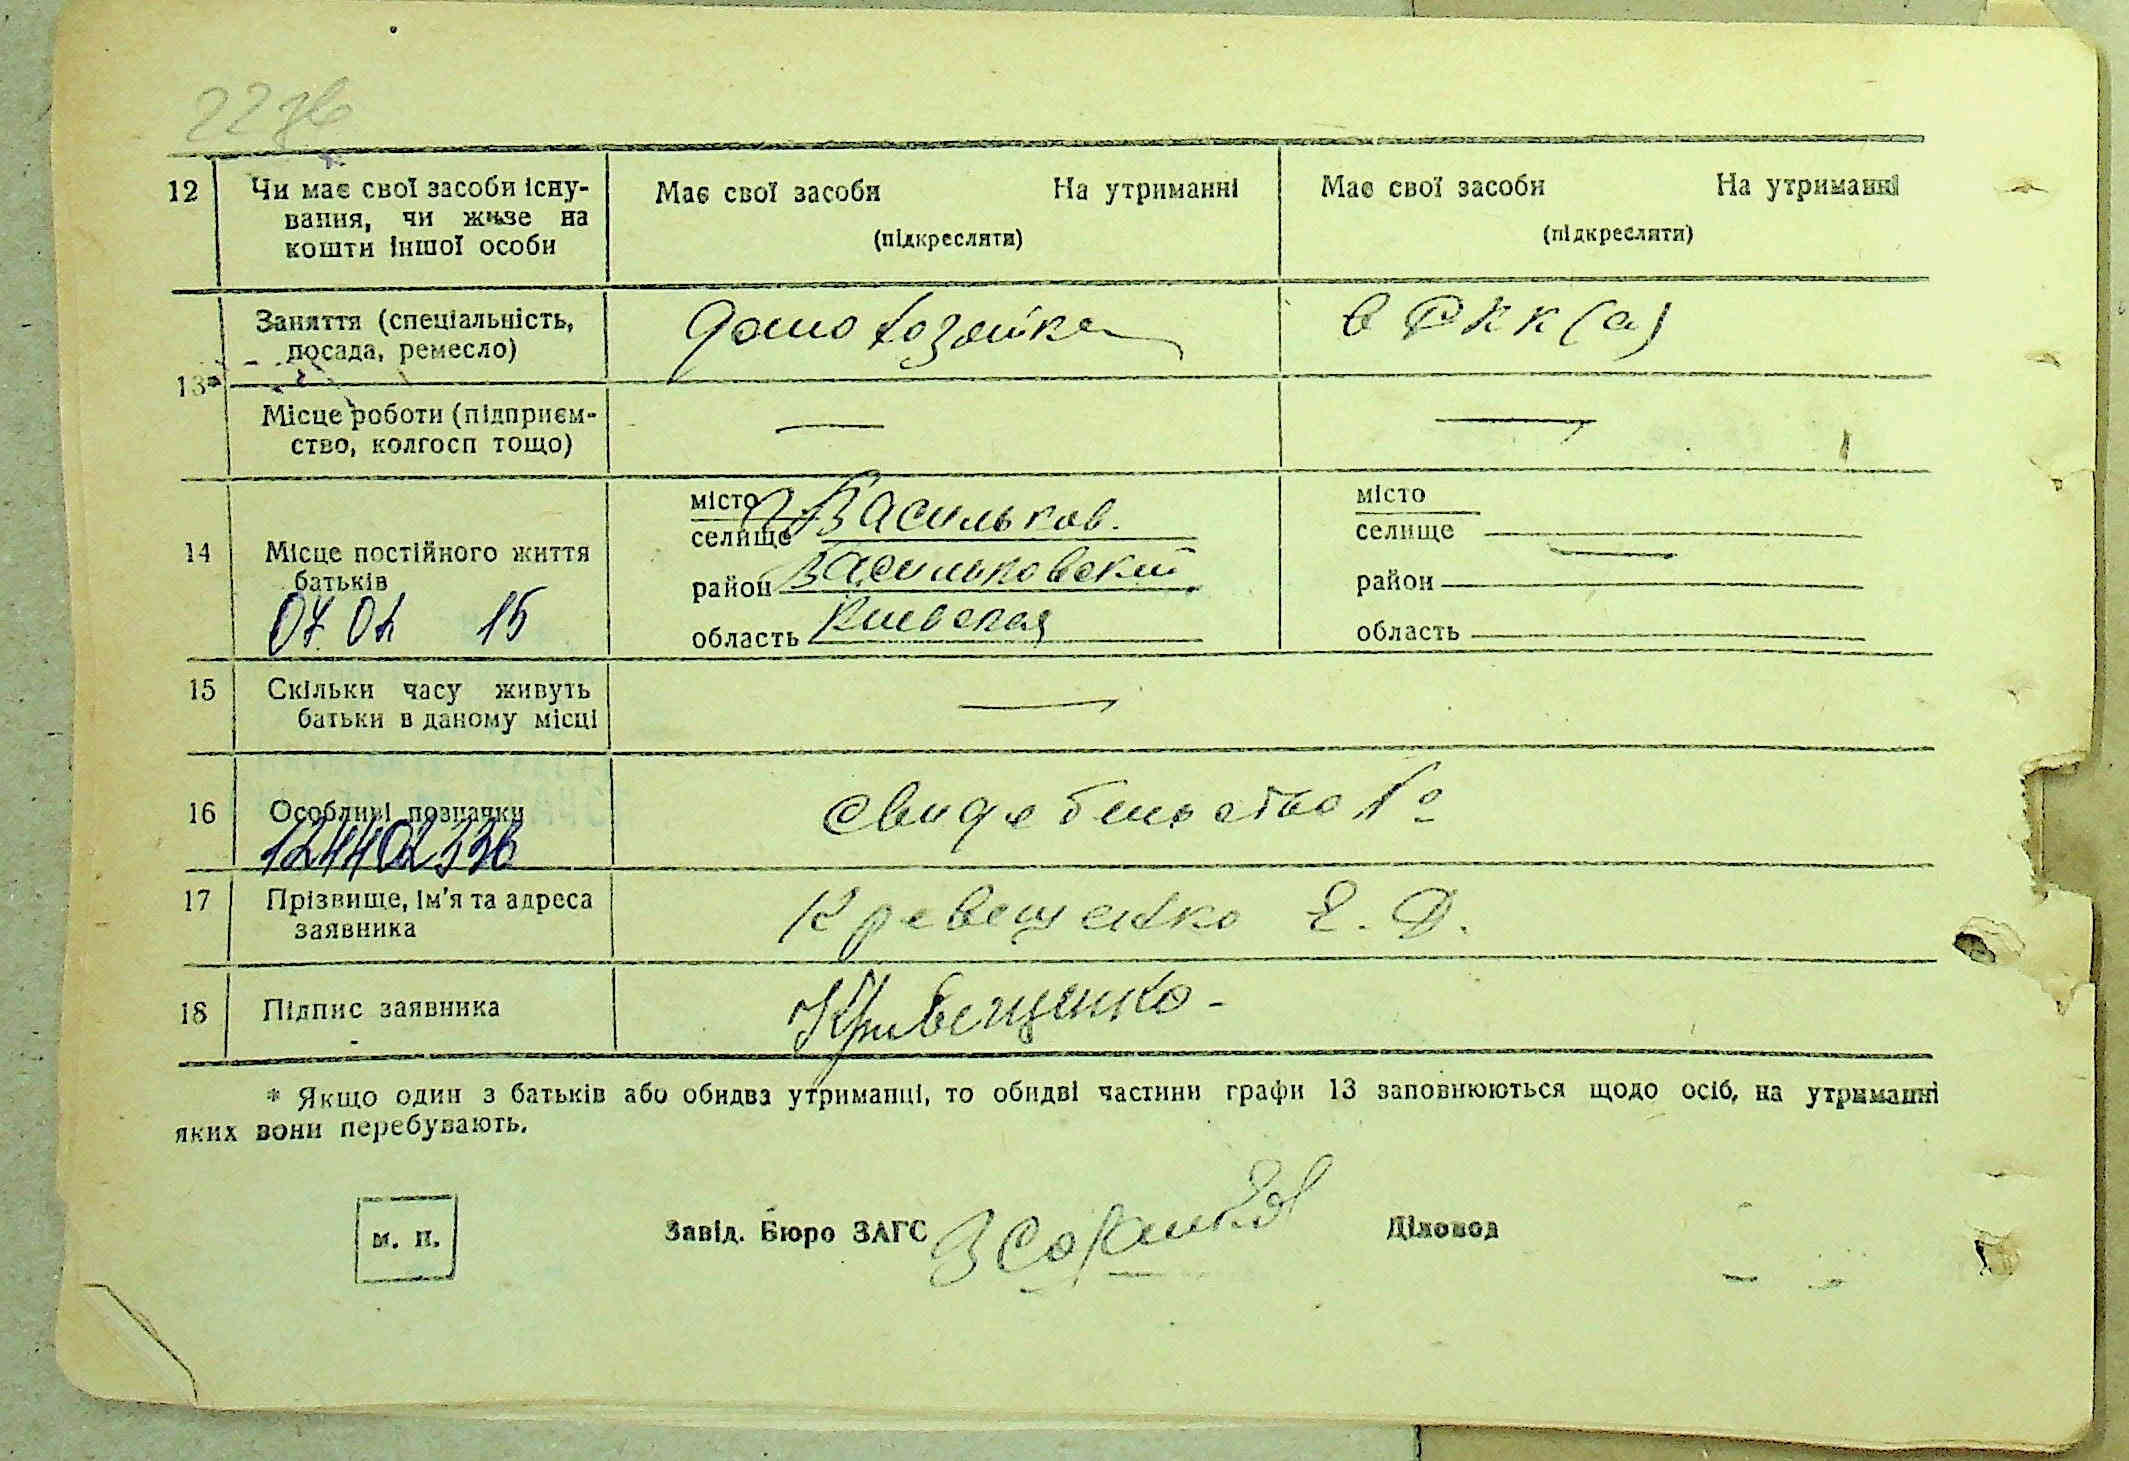 223б
12 Чи має свої засоби існу- Має свої засоби На утриманні Має свої засоби На утриманні
вання, чи живе на (підкресляти) (підкресляти)
кошти іншої особи
Заняття (спеціальність, домохозяйка в РКК(а)
посада, ремесло)
13*
Місце роботи (підприєм- — —
ство, колгосп тощо)
місто г. Васильков. місто
селище селище —
14 Місце постійного життя район Васильковский район
батьків
07.02 15 область Киевская область
15 Скільки часу живуть —
батьки в даному місці
16 Особливі позначки свидетельство №
124402336
17 Прізвище, ім'я та адреса Кревещенко Е. Д.
заявника
18 Підпис заявника Кривещенко-
* Якщо один з батьків або обидва утриманці, то обидві частини графи 13 заповнюються щодо осіб, на утриманні
яких вони перебувають.
м. п. Завід. Бюро ЗАГС Діловод